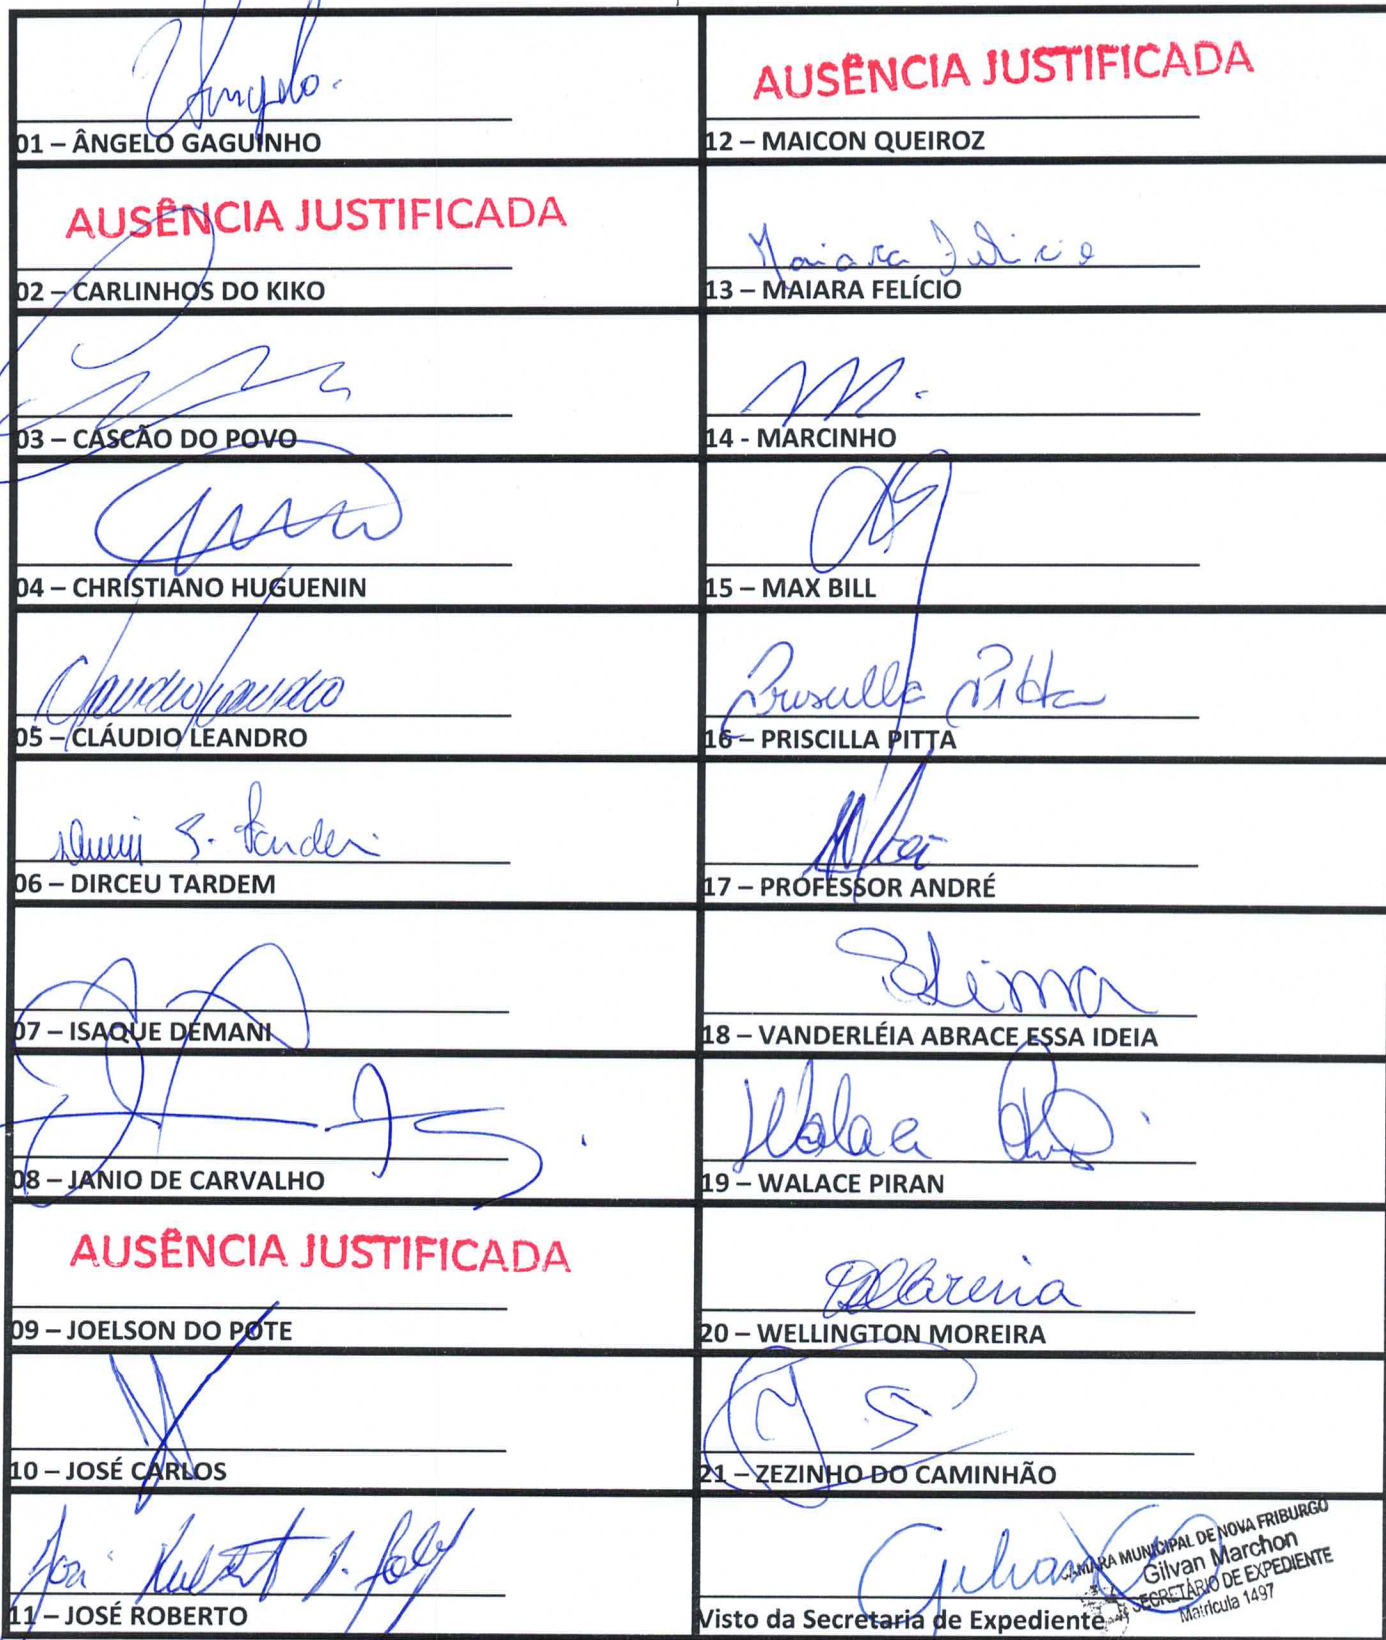 Ângelo.
01 – ÂNGELO GAGUINHO
AUSÊNCIA JUSTIFICADA
02 – CARLINHOS DO KIKO
03 – CASCÃO DO POVO
04 – CHRISTIANO HUGUENIN
05 – CLÁUDIO LEANDRO
06 – DIRCEU TARDEM
07 – ISAQUE DEMANI
08 – JANIO DE CARVALHO
AUSÊNCIA JUSTIFICADA
09 – JOELSON DO POTE
10 – JOSÉ CARLOS
11 – JOSÉ ROBERTO
AUSÊNCIA JUSTIFICADA
12 – MAICON QUEIROZ
Maiara Felício
13 – MAIARA FELÍCIO
14 - MARCINHO
15 – MAX BILL
Priscilla Pitta
16 – PRISCILLA PITTA
17 – PROFESSOR ANDRÉ
18 – VANDERLÉIA ABRACE ESSA IDEIA
Walace
19 – WALACE PIRAN
20 – WELLINGTON MOREIRA
21 – ZEZINHO DO CAMINHÃO
CÂMARA MUNICIPAL DE NOVA FRIBURGO
Gilvan Marchon
SECRETÁRIO DE EXPEDIENTE
Matrícula 1497
Visto da Secretaria de Expediente